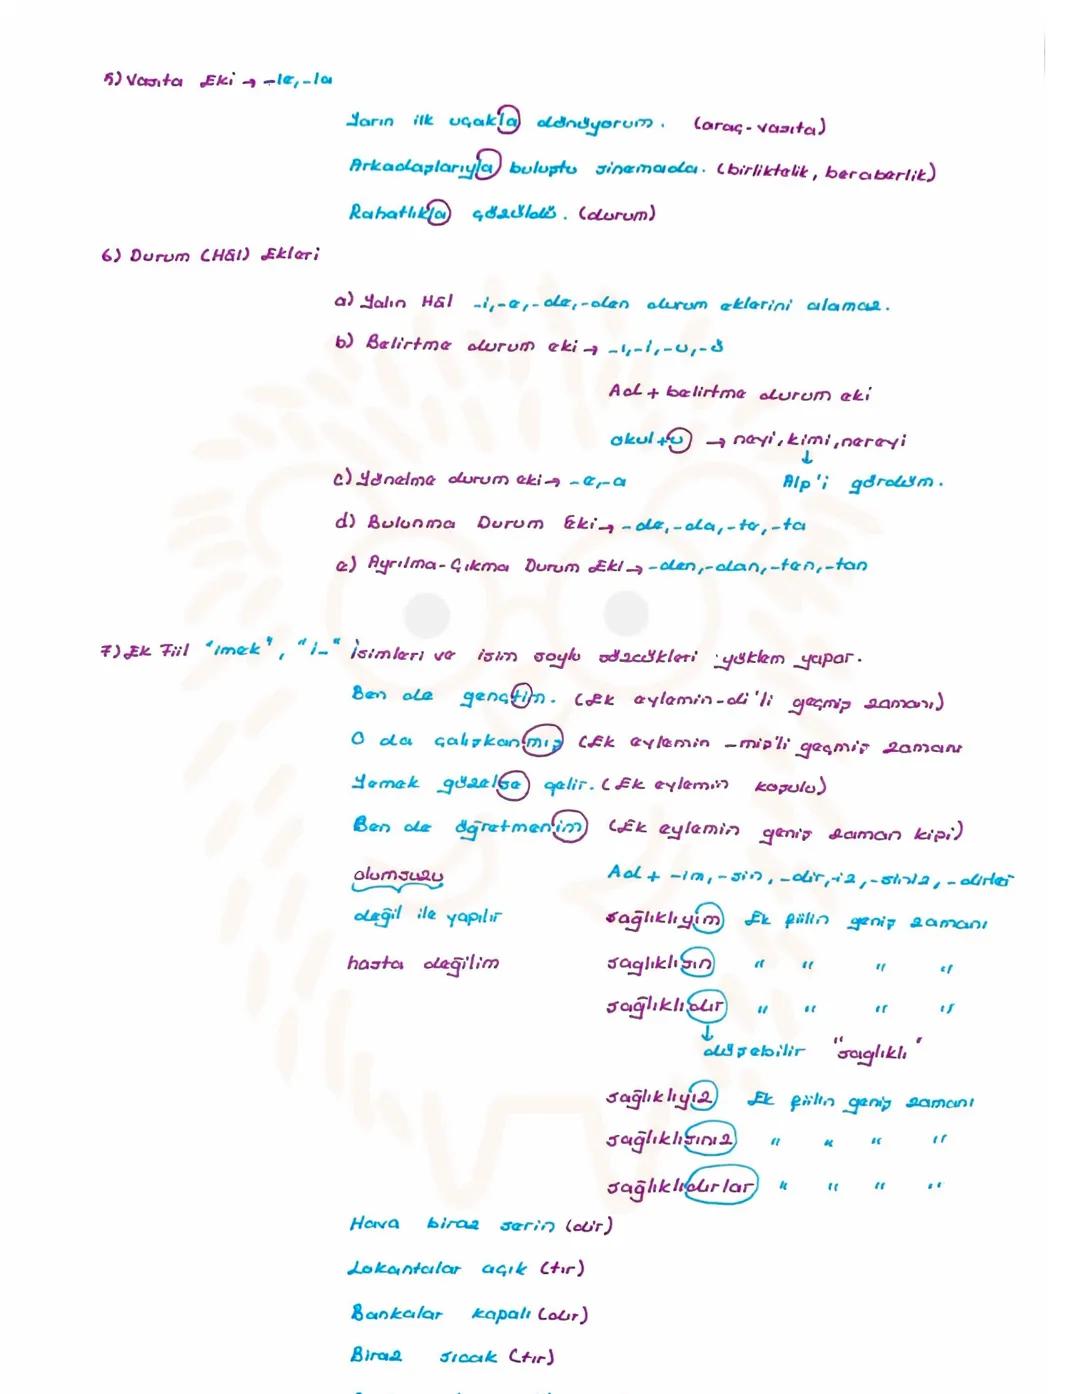 5) Vasıta Eki → -le, -la
Yarın ilk uçakla dönüyorum. (araç-vasıta)
Arkadaşlarıyla buluştu sinemada. (birliktelik, beraberlik)
Rahatlıkla çözüldü. (durum)
6) Durum (Hâl) Ekleri
a) Yalın Hâl -i, -e, -de, -den durum eklerini alamaz.
b) Belirtme durum eki → -ı, -i, -u, -ü
Ad + belirtme durum eki
okul + u → neyi, kimi, nereyi
↓
c) Yönelme durum eki → -e, -a Alp'i gördüm.
d) Bulunma Durum Eki → -de, -da, -te, -ta
e) Ayrılma-Çıkma Durum Eki → -den, -dan, -ten, -tan
7) Ek Fiil "imek", "i-" isimleri ve isim soylu sözcükleri yüklem yapar.
Ben de gençtim. (Ek eylemin -di'li geçmiş zamanı)
O da çalışkanmış (Ek eylemin -miş'li geçmiş zamanı
Yemek güzelse gelir. (Ek eylemin koşulu)
Ben de öğretmenim (Ek eylemin geniş zaman kipi)
olumsuzu Ad + -im, -sin, -dir, -iz, -siniz, -dirler
değil ile yapılır sağlıklıyım Ek fiilin geniş zamanı
hasta değilim sağlıklısın " " " "
sağlıklıdır " " " "
↓
düşebilir "sağlıklı"
sağlıklıyız Ek fiilin geniş zamanı
sağlıklısınız " " " "
sağlıklıdırlar " " " "
Hava biraz serin (dir)
Lokantalar açık (tır)
Bankalar kapalı (dır)
Biraz sıcak (tır)